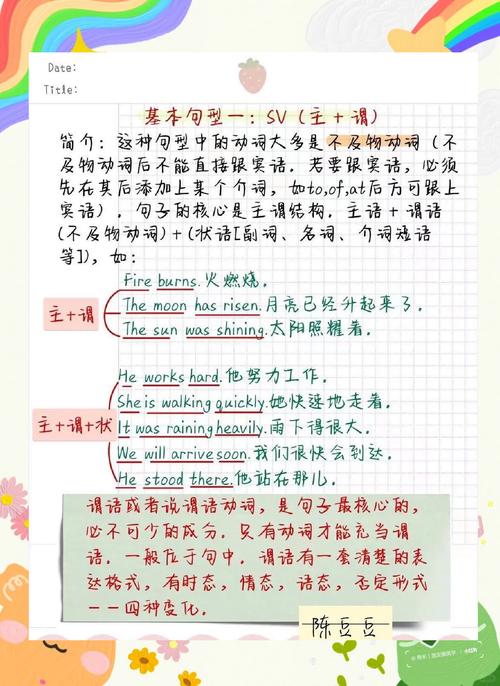 Date:
Title:
基本句型一：SV（主+谓）
简介：这种句型中的动词大多是不及物动词（不
及物动词后不能直接跟宾语．若要跟宾语，必须
先在其后添加上某个介词，如to,of,at后方可跟上
宾语）．句子的核心是主谓结构．主语+谓语
(不及物动词)+(状语[副词、名词、介词短语
等])，如：
主+谓
Fire burns.火燃烧．
The moon has risen.月亮已经升起来了．
The sun was shining.太阳照耀着．
主+谓+状
He works hard.他努力工作．
She is walking quickly.她快速地走着．
It was raining heavily.雨下得很大．
We will arrive soon.我们很快会到达．
He stood there.他站在那儿．
谓语或者说谓语动词，是句子最核心的，
必不可少的成分．只有动词才能充当谓
语．一般位于句中．谓语有一套清楚的表
达格式，有时态，情态，语态，否定形式
——四种变化．
陈豆豆